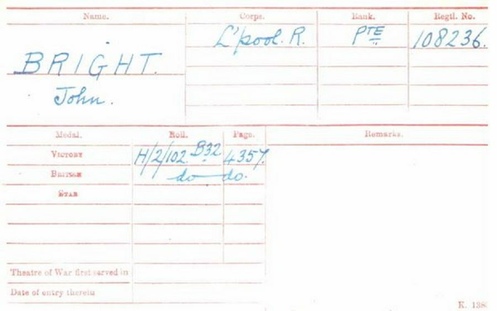 Name. Corps. Rank. Regtl. No.
BRIGHT. L'pool. R. PTE 108236.
John.
Medal. Roll. Page. Remarks.
VICTORY H/2/102.B32 4357.
BRITISH do do.
STAR
Theatre of War first served in
Date of entry therein
K. 138